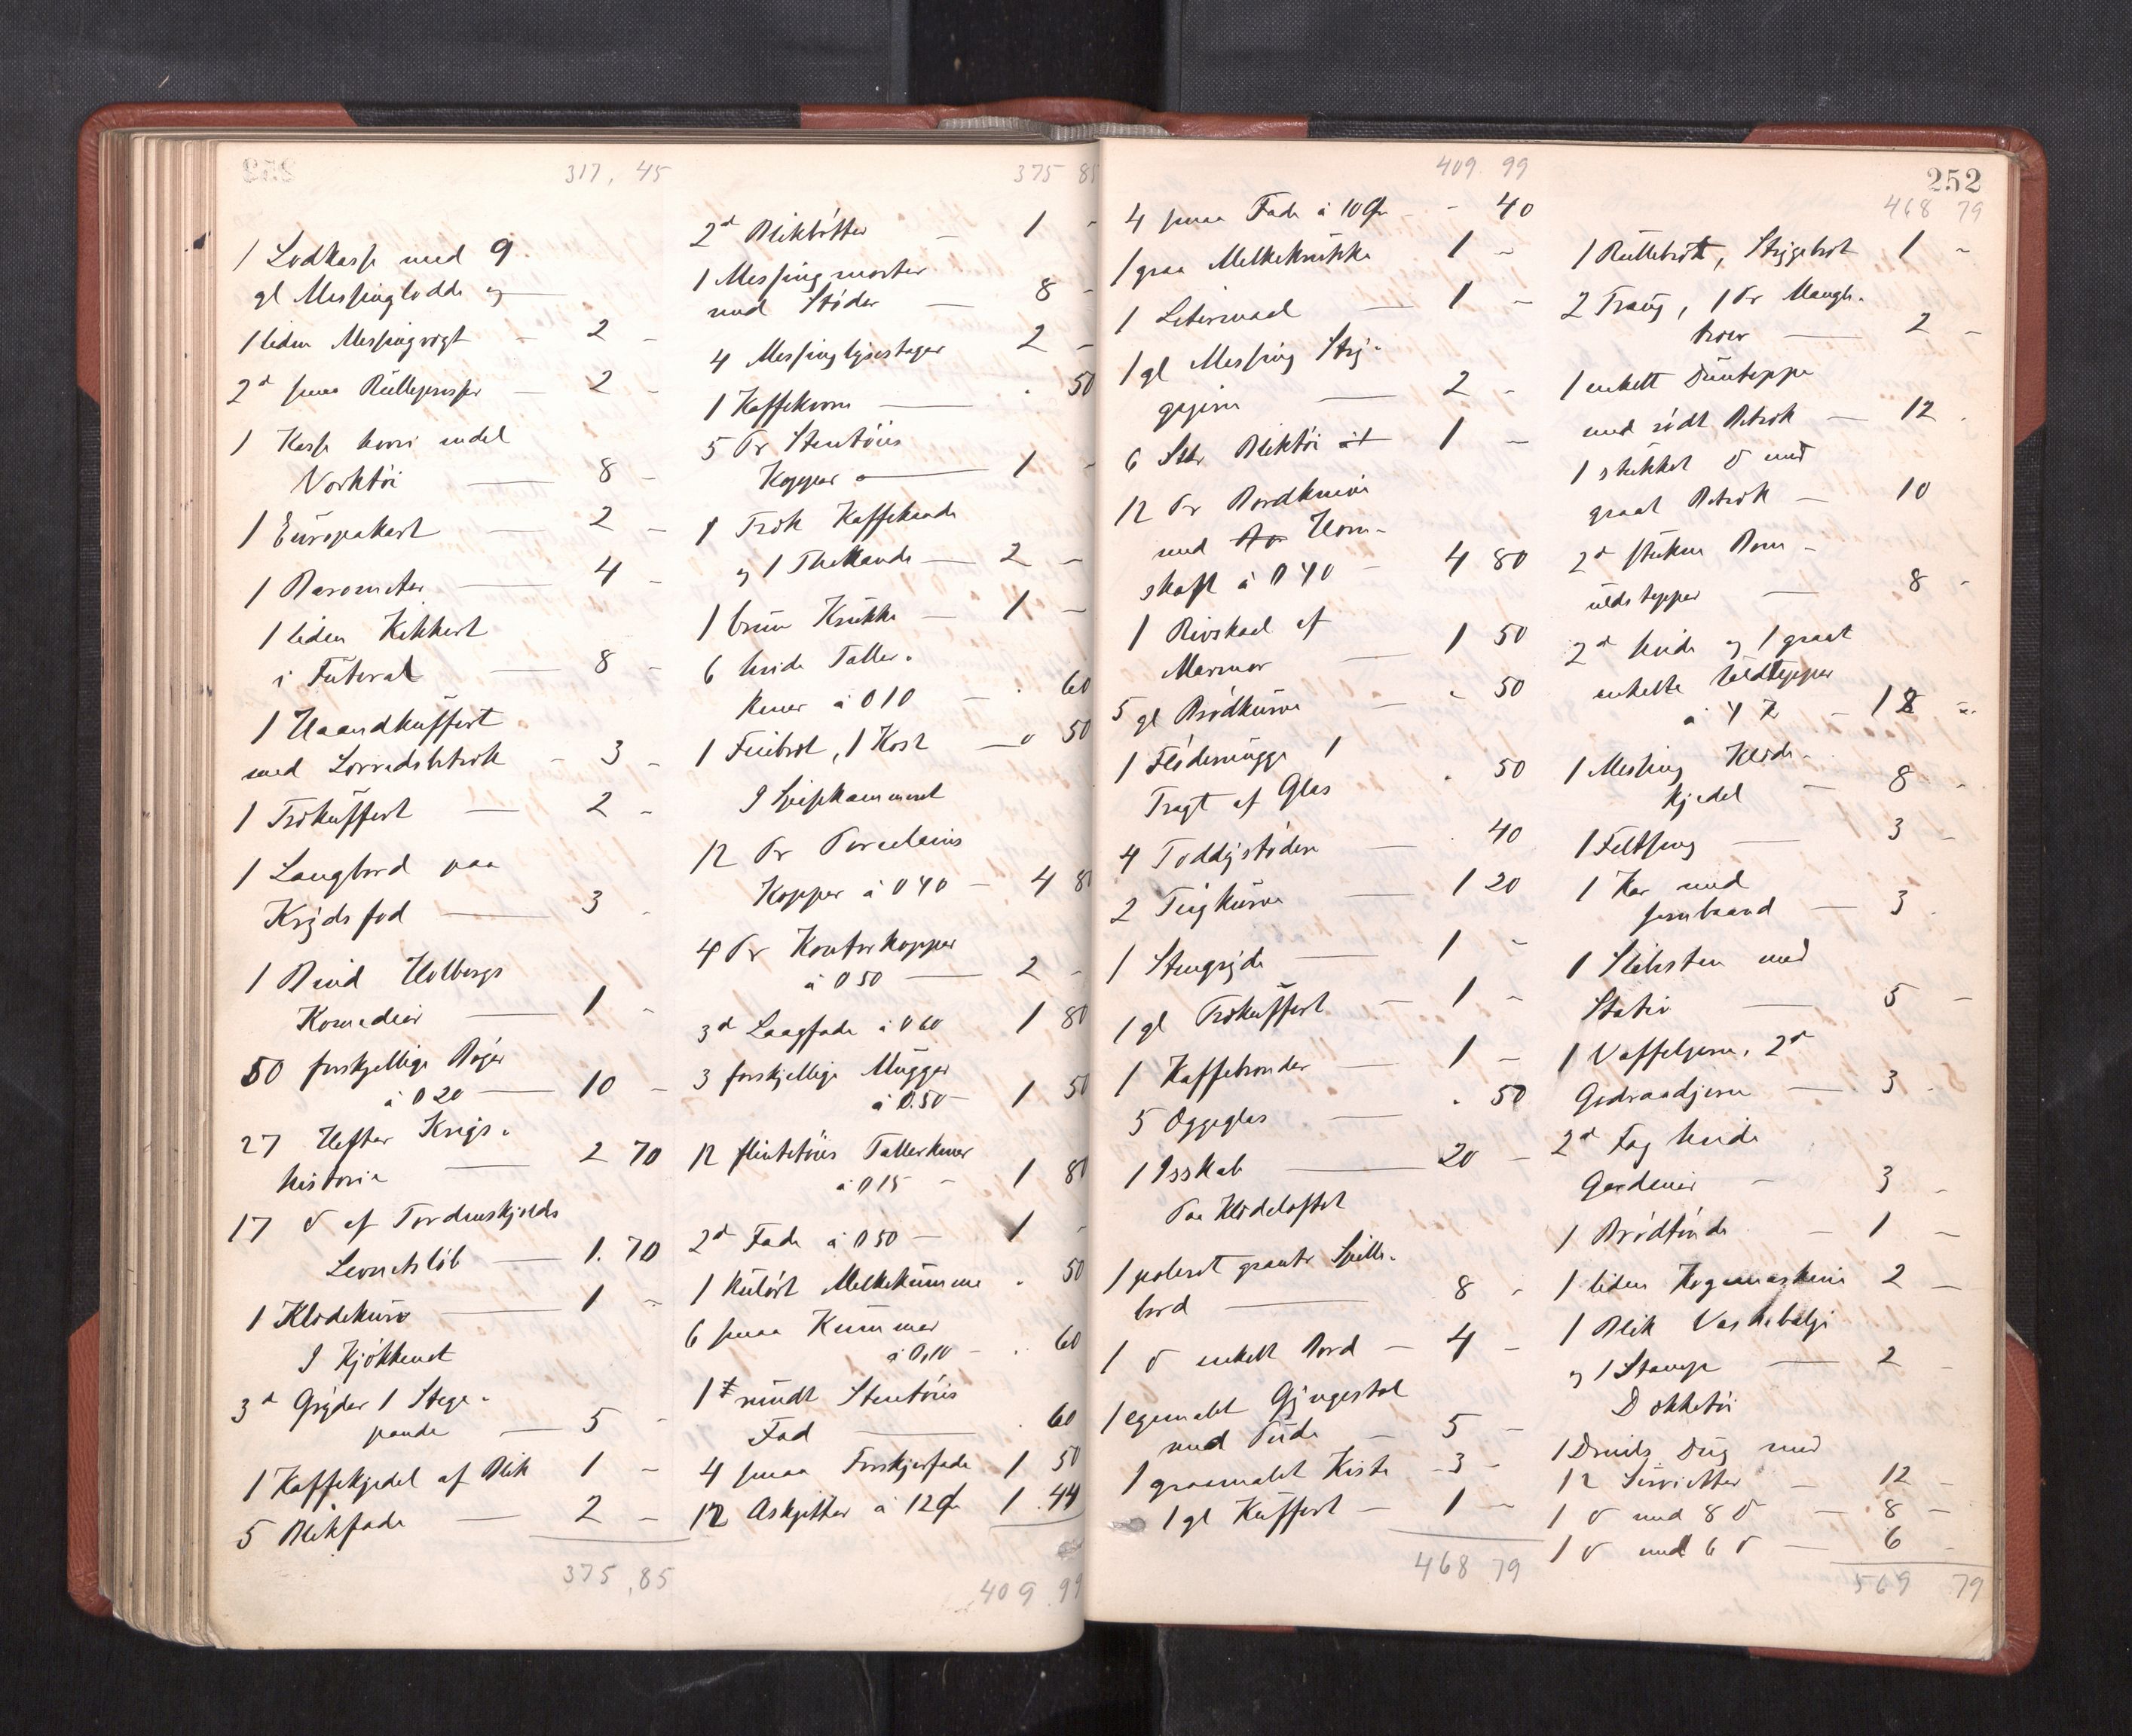 317, 45
1 Lodkasse med 9
gl Messinglodde og
1 liden Messingvegt - 2 -
2d smaa Rullepresser - 2 -
1 Kasse hvori endel
Verktøi - 8 -
1 Europakart - 2 -
1 Barometer - 4 -
1 liden Kikkert
i Futeral - 8 -
1 Haandkuffert
med Lærredsbetræk - 3 -
1 Trækuffert - 2 -
1 Langbord paa
Krydsfod - 3 -
1 Bind Holbergs
Komedier - 1 -
50 forskjellige Bøger
à 0 20 - 10 -
27 Hefter Krigs-
historie - 2 70
17 do af Tordenskjolds
Levnetsløb - 1. 70
1 Klædekurv - 1 -
I Kjøkkenet
3d Gryder 1 Stege-
pande - 5 -
1 Kaffekjedel af Blik 1 -
5 Blikfade - 2 -
375,85
375 85
2d Bliktøtter - 1 -
1 Messingmorter
med Støder - 8 -
4 Messinglysestager 2 -
1 Kaffekvern - . 50
5 Pr Stentøis
Kopper - 1 -
1 Træk Kaffekande
og 1 Thekande - 2 -
1 brun Krukke - 1 -
6 hvide Taller-
kener à 0 10 - . 60
1 Feiebret, 1 Kost - 0 50
I Spisekammeret
12 Pr Porcelæins
Kopper à 0 40 - 4 80
4 Pr Kontorkopper
à 0 50 - 2 -
3d Laagfade à 0 60 1 80
3 forskjellige Mugger
à 0.50 - 1 50
12 flintetøis Tallerkener
à 0 15 - 1 80
2d Fade à 0 50 - 1 -
1 kulørt Melkekumme . 50
6 smaa Kummer
à 0,10 - . 60
1 rundt Stentøis
Fad . 60
4 smaa Forskjærfade 1 50
12 Askjetter à 12 Øre 1.44
409 99
409 99
4 smaa Fade à 10 Øre - - 40
1 graa Melkekrukke 1 -
1 Litermaal - 1 -
1 gl Messing Stry-
gejern - 2 -
6 Stkr Bliktøi 1 -
12 Pr Bordknive
med Horn-
skaft à 0 40 - 4 80
1 Rivskaal af
Marmor - 1 50
5 gl Brødkurve - - 50
1 Flødemugge 1
Tragt af Glas . 50
4 Toddystødere - . 40
2 Tøigkurve - 1 20
1 Stengryde - 1 -
1 gl Trækuffert - 1 -
1 Kaffebrænder - 1 -
5 Æggeglas - . 50
1 Isskab - 20 -
Paa Klædeloftet
1 poleret Spille-
bord - 8 -
1 do enkelt Bord - 4 -
1 egemalet Gyngestol
med Pude - 5 -
1 graamalet Kiste - 3 -
1 gl Kuffert - 1 -
468 79
252
468 79
1 Rullebræt, Strygebræt 1 -
2 Traug, 1 Pr Mangle-
træer - 2 -
1 enkelt Duntæppe
med rødt Betræk - 12 .
1 stukket do med
graat Betræk - 10
2d stukne Bom-
uldstæpper - 8 -
2d hvide og 1 graat
enkelte Uldtæpper
à 4 - 12 -
1 Messing Klæde-
kjedel - 8 -
1 Feltseng - 3 -
1 Kar med
Jernbaand - 3 -
1 Slibesten med
Stativ - 5 -
1 Vaffeljern, 2d
Godraadjern - 3 -
2d Fag hvide
Gardiner - 3 -
1 Brødtønde - 1 -
1 liden Kogemaskine 2 -
1 Blik Vaskebalje
og 1 Stamp - 2 -
Dækketøi
1 Dreils Dug med
12 Servietter - 12 -
1 do med 8 do - 8 -
1 do med 6 do - 6 -
569 79